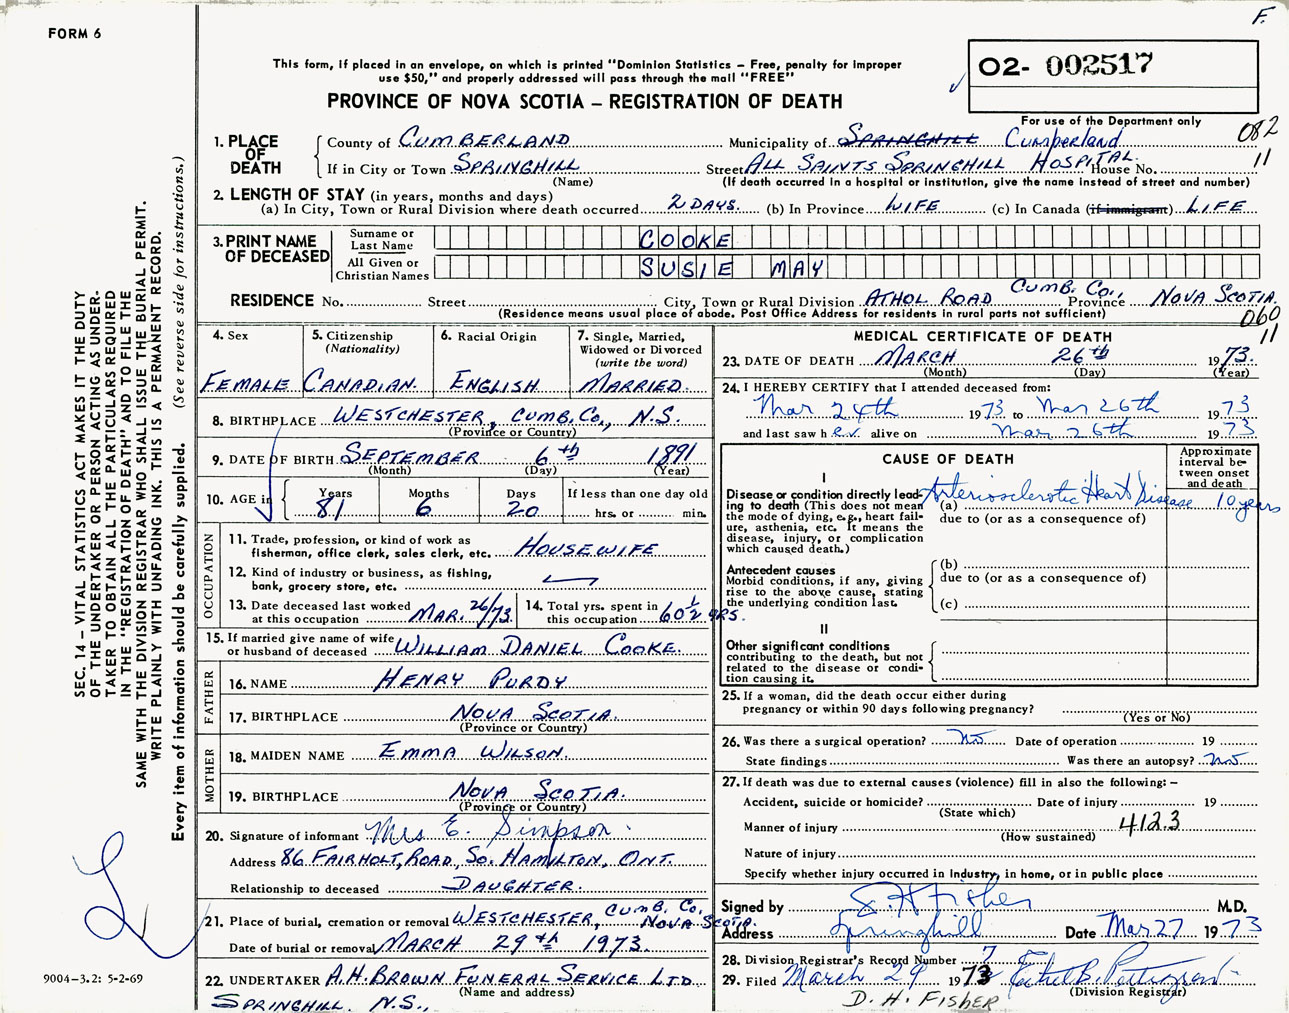 F.
FORM 6
This form, if placed in an envelope, on which is printed "Dominion Statistics – Free, penalty for improper
use $50," and properly addressed will pass through the mail "FREE"
O2- 002517
PROVINCE OF NOVA SCOTIA – REGISTRATION OF DEATH
For use of the Department only
082
11
1. PLACE OF DEATH
County of CUMBERLAND Municipality of SPRINGHILL Cumberland
If in City or Town SPRINGHILL Street ALL SAINTS SPRINGHILL HOSPITAL. House No.
(Name) (If death occurred in a hospital or institution, give the name instead of street and number)
2. LENGTH OF STAY (in years, months and days)
(a) In City, Town or Rural Division where death occurred 2 DAYS. (b) In Province LIFE (c) In Canada (if immigrant) LIFE
3. PRINT NAME OF DECEASED
Surname or Last Name COOKE
All Given or Christian Names SUSIE MAY
RESIDENCE No. Street City, Town or Rural Division ATHOL ROAD CUMB. CO., Province NOVA SCOTIA.
(Residence means usual place of abode. Post Office Address for residents in rural parts not sufficient)
060
11
4. Sex
FEMALE
5. Citizenship
(Nationality)
CANADIAN.
6. Racial Origin
ENGLISH
7. Single, Married,
Widowed or Divorced
(write the word)
MARRIED.
8. BIRTHPLACE WESTCHESTER, CUMB. CO., N.S.
(Province or Country)
9. DATE OF BIRTH SEPTEMBER 6th 1891
(Month) (Day) (Year)
10. AGE in
Years Months Days If less than one day old
81 6 20 hrs. or min.
OCCUPATION
11. Trade, profession, or kind of work as
fisherman, office clerk, sales clerk, etc. HOUSEWIFE
12. Kind of industry or business, as fishing,
bank, grocery store, etc.
13. Date deceased last worked
at this occupation MAR. 26/73
14. Total yrs. spent in
this occupation 60 1/2 YRS.
15. If married give name of wife
or husband of deceased WILLIAM DANIEL COOKE.
FATHER
16. NAME HENRY PURDY
17. BIRTHPLACE NOVA SCOTIA.
(Province or Country)
MOTHER
18. MAIDEN NAME EMMA WILSON.
19. BIRTHPLACE NOVA SCOTIA.
(Province or Country)
20. Signature of informant Mrs E. Simpson.
Address 86 FAIRHOLT, ROAD, SO. HAMILTON, ONT.
Relationship to deceased DAUGHTER.
21. Place of burial, cremation or removal WESTCHESTER, CUMB. CO. NOVA SCOTIA.
Date of burial or removal MARCH 29th 1973.
22. UNDERTAKER A.H. BROWN FUNERAL SERVICE LTD.
(Name and address)
SPRINGHILL. N.S.,
MEDICAL CERTIFICATE OF DEATH
23. DATE OF DEATH MARCH 26th 1973.
(Month) (Day) (Year)
24. I HEREBY CERTIFY that I attended deceased from:
Mar 24th 1973 to Mar 26th 1973
and last saw h er. alive on Mar 26th 1973.
CAUSE OF DEATH
Approximate
interval be-
tween onset
and death
I
Disease or condition directly lead-
ing to death (This does not mean
the mode of dying, e.g., heart fail-
ure, asthenia, etc. It means the
disease, injury, or complication
which caused death.)
(a) Arteriosclerotic Heart Disease 10 years
due to (or as a consequence of)
Antecedent causes
Morbid conditions, if any, giving
rise to the above cause, stating
the underlying condition last.
(b)
due to (or as a consequence of)
(c)
II
Other significant conditions
contributing to the death, but not
related to the disease or condi-
tion causing it.
25. If a woman, did the death occur either during
pregnancy or within 90 days following pregnancy?
(Yes or No)
26. Was there a surgical operation? No. Date of operation 19
State findings Was there an autopsy? No.
27. If death was due to external causes (violence) fill in also the following: –
Accident, suicide or homicide? Date of injury 19
(State which)
Manner of injury 412.3
(How sustained)
Nature of injury
Specify whether injury occurred in Industry, in home, or in public place
Signed by D H Fisher M.D.
Address Springhill Date Mar 27 1973
28. Division Registrar's Record Number 7
29. Filed March 29 1973
(Division Registrar)
D. H. FISHER
SEC. 14 – VITAL STATISTICS ACT MAKES IT THE DUTY
OF THE UNDERTAKER OR PERSON ACTING AS UNDER-
TAKER TO OBTAIN ALL THE PARTICULARS REQUIRED
IN THE "REGISTRATION OF DEATH" AND TO FILE THE
SAME WITH THE DIVISION REGISTRAR WHO SHALL ISSUE THE BURIAL PERMIT.
WRITE PLAINLY WITH UNFADING INK. THIS IS A PERMANENT RECORD.
Every item of information should be carefully supplied. (See reverse side for instructions.)
9004–3.2: 5-2-69